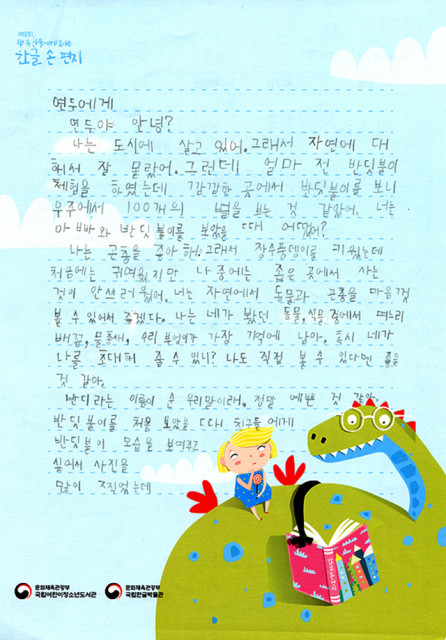 한글 손 편지
연두에게
연두야 안녕?
나는 도시에 살고 있어. 그래서 자연에 대
해서 잘 몰랐어. 그런데 얼마 전 반딧불이
체험을 하였는데 캄캄한 곳에서 반딧불이를 보니
우주에서 100개의 별을 보는 것 같았어. 너는
아빠와 반딧불이를 보았을 때 어땠어?
나는 곤충을 좋아해. 그래서 장수풍뎅이를 키웠는데
처음에는 귀여웠지만 나중에는 좁은 곳에서 사는
것이 안쓰러웠어. 너는 자연에서 동물과 곤충을 마음껏
볼 수 있어서 좋겠다. 나는 네가 봤던 동물, 식물 중에서 며느리
배꼽, 물총새, 수리부엉이가 가장 기억에 남아. 혹시 네가
나를 초대해 줄 수 있니? 나도 직접 볼 수 있다면 좋을
것 같아.
반디라는 이름이 순 우리말이래. 정말 예쁜 것 같아.
반딧불이를 처음 보았을 때 친구들에게
반딧불이 모습을 보여주고
싶어서 사진을
많이 찍었는데
문화체육관광부
국립어린이청소년도서관
문화체육관광부
국립한글박물관